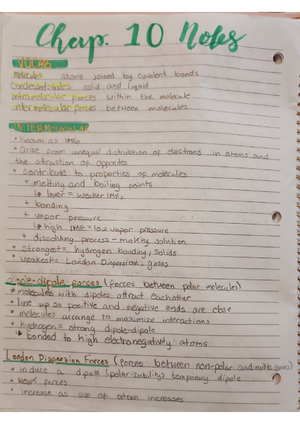 Chap. 10 Notes
VOCAB
molecules atoms joined by covalent bonds
condensed states solid and liquid
intramolecular forces within the molecule
intermolecular forces between molecules
INTERMOLECULAR
• known as IMFs
• Arise from unequal distribution of electrons in atoms and
the attraction of opposites
• contribute to properties of molecules
+ melting and boiling points
↳ lower = weaker IMFs
+ bonding
+ vapor pressure
↳ high IMF = low vapor pressure
+ dissolving process - making solution
• Strongest = hydrogen bonding, solids
• weakest = London Dispersion, gases
dipole-dipole forces (forces between polar molecules)
• molecules with dipoles attract eachother
• line up so positive and negative ends are close
• molecules arrange to maximize interactions
• hydrogen = strong dipole-dipole
↳ bonded to high electronegativity atoms
London Dispersion Forces (forces between non-polar and noble gases)
• induce a dipole (polarizability) temporary dipole
• weak forces
• increase as size of atom increases